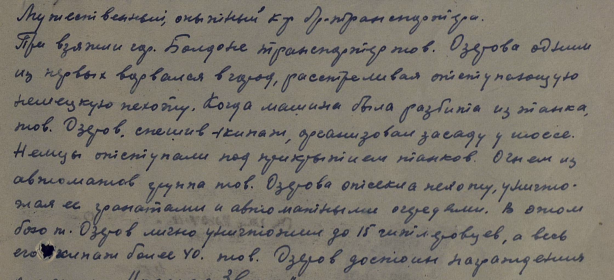 Мужественный, опытный к-р бр-транспортера.
При взятии гор. Балдоне транспортер тов. Озерова одним
из первых ворвался в город, расстреливая отступающую
немецкую пехоту. Когда машина была разбита из танка,
тов. Озеров, спешив экипаж, организовал засаду у шоссе.
Немцы отступали под прикрытием танков. Огнем из
автоматов группа тов. Озерова отсекла пехоту, уничто-
жая ее гранатами и автоматными очередями. В этом
бою т. Озеров лично уничтожил до 15 гитлеровцев, а весь
его экипаж более 40. тов. Озеров достоин награждения